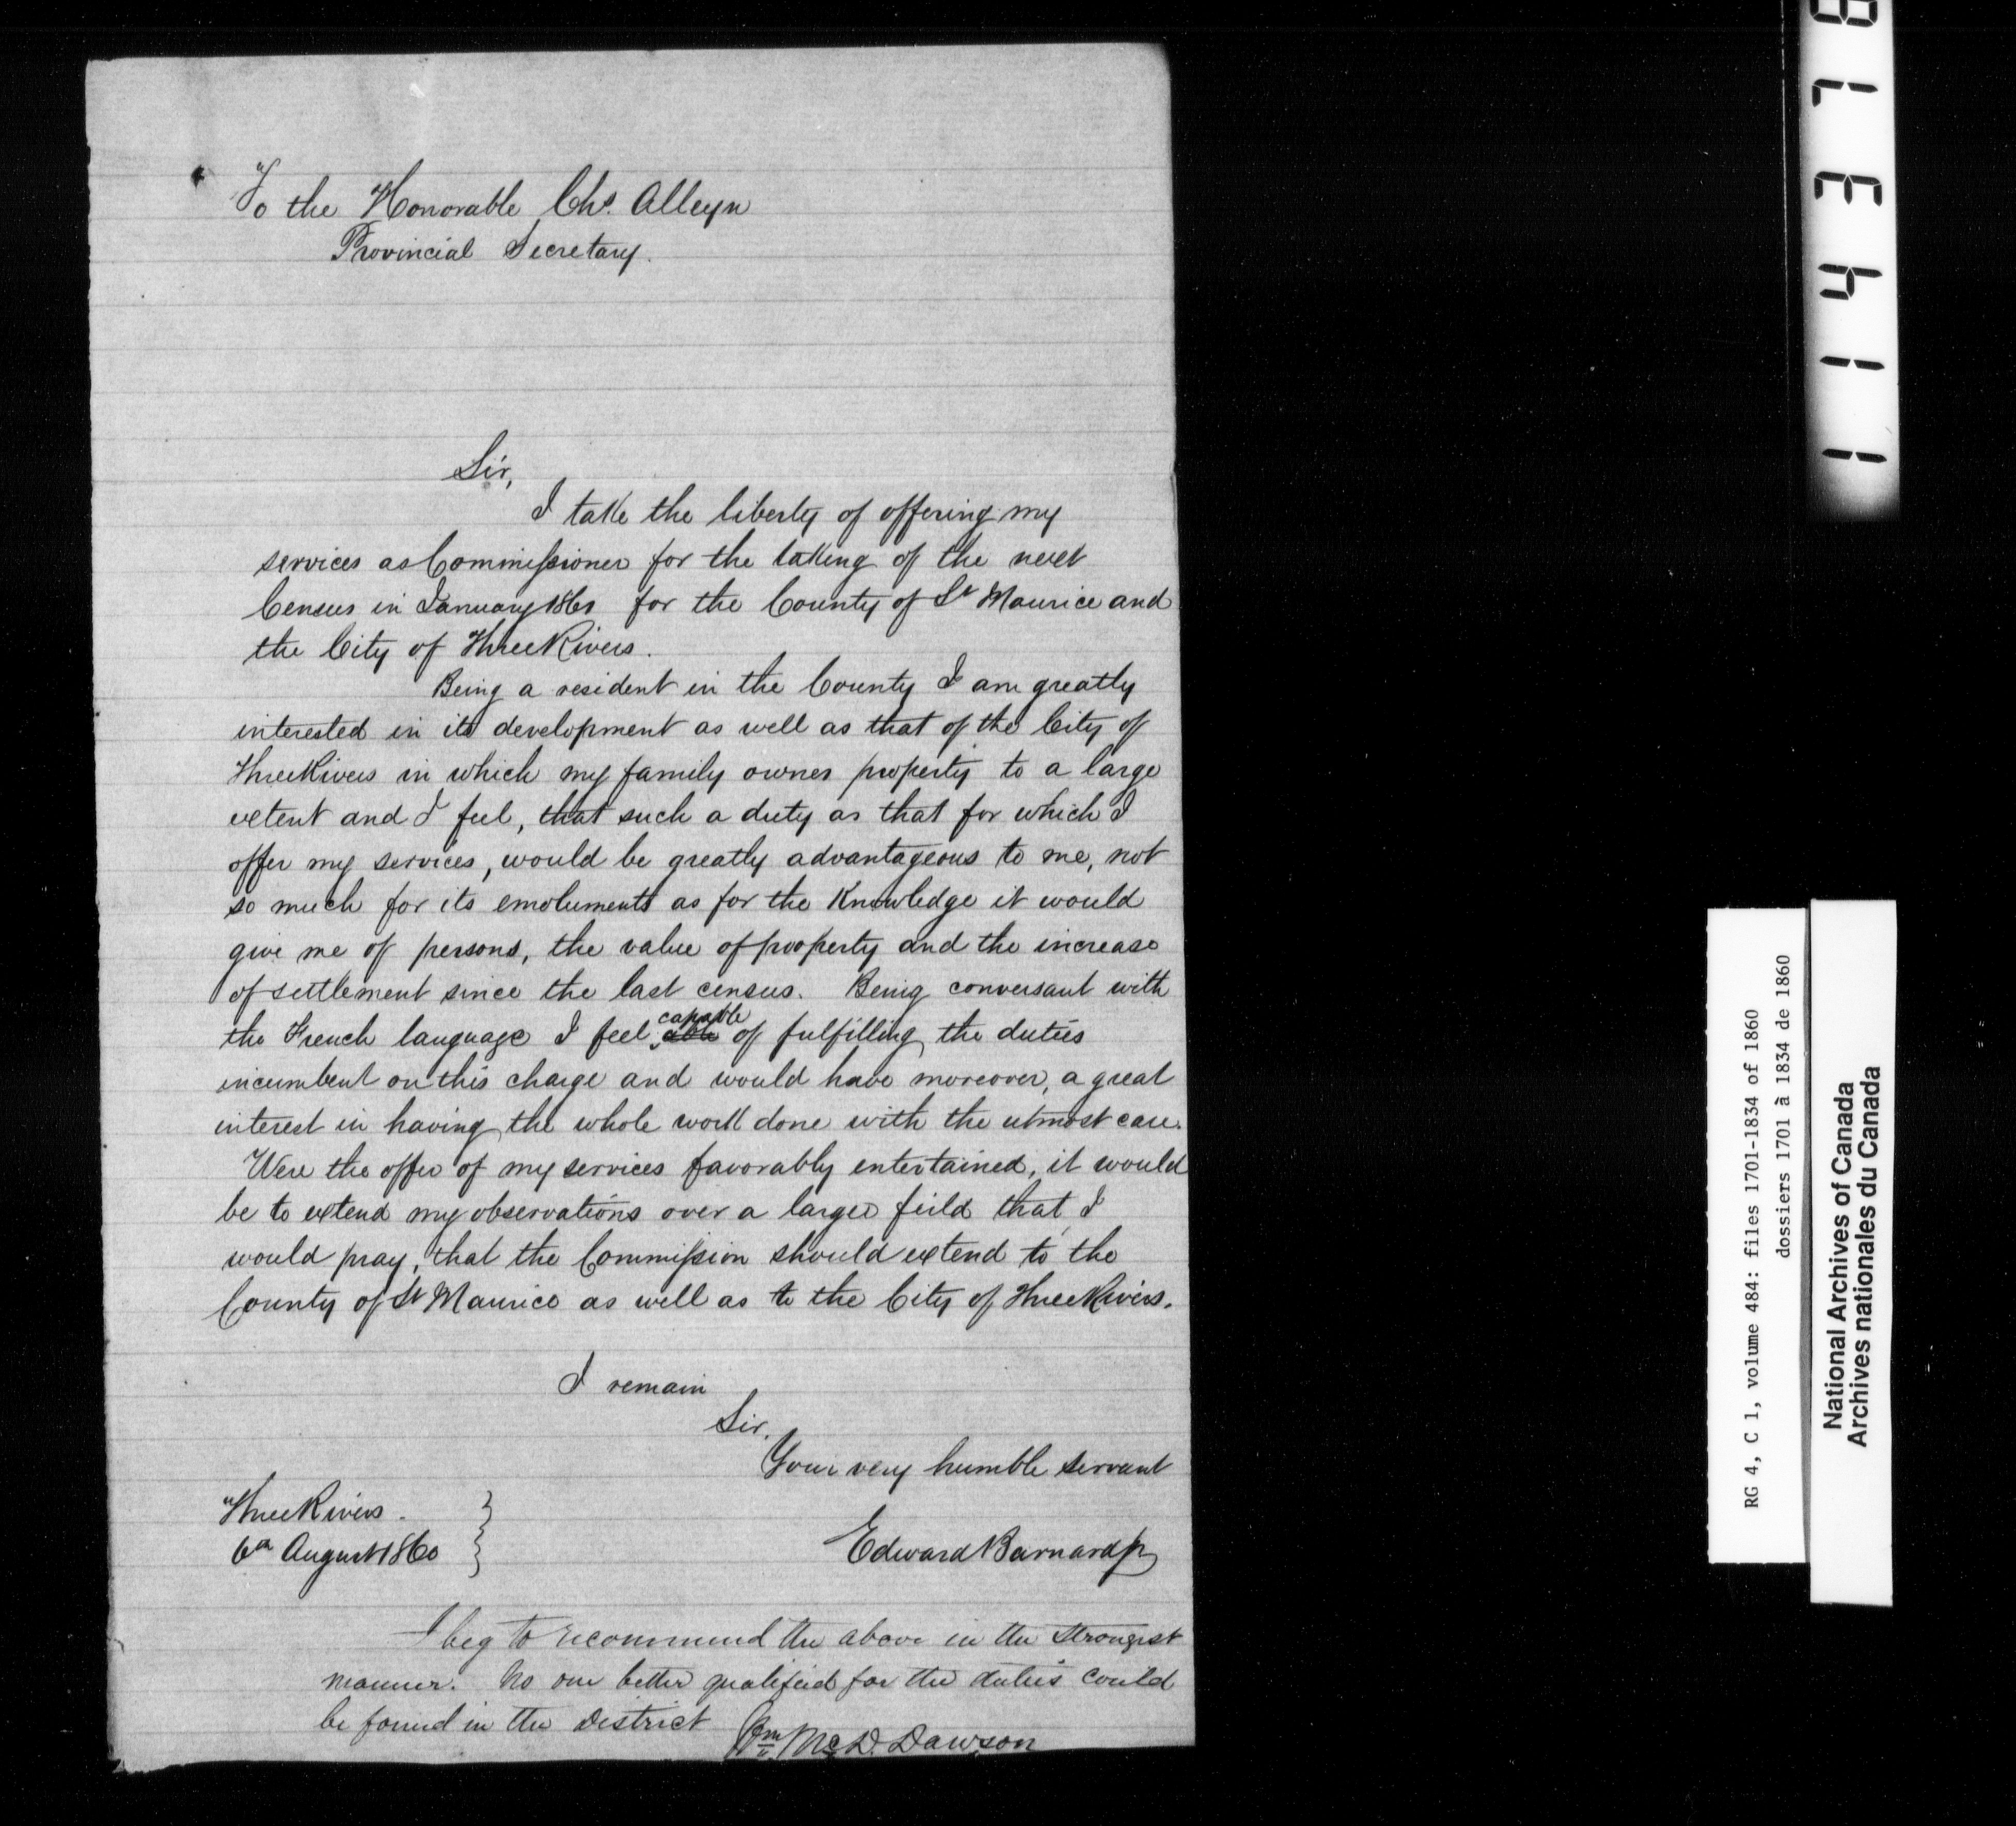 To the Honorable Chs. Alleyn
Provincial Secretary.
Sir,
I take the liberty of offering my
services as Commissioner for the taking of the next
Census in January 1861 for the County of St Maurice and
the City of Three Rivers.
Being a resident in the County I am greatly
interested in its development as well as that of the City of
Three Rivers in which my family ownes property to a large
extent and I feel, that such a duty as that for which I
offer my services, would be greatly advantageous to me, not
so much for its emoluments as for the Knowledge it would
give me of persons, the value of property and the increase
of settlement since the last census. Being conversant with
the French language I feel able capable of fulfilling the duties
incumbent on this charge and would have moreover, a great
interest in having the whole work done with the utmost care.
Were the offer of my services favorably entertained, it would
be to extend my observations over a larger feild that I
would pray, that the Commission should extend to the
County of St Maurice as well as to the City of Three Rivers.
I remain
Sir,
Your very humble servant
Three Rivers.
6th August 1860
Edward Barnard jr
I beg to recommend the above in the strongest
manner. No one better qualified for the duties could
be found in the District
Wm McD. Dawson
1 1 4 3 7 8
RG 4, C 1, volume 484: files 1701-1834 of 1860
dossiers 1701 à 1834 de 1860
National Archives of Canada
Archives nationales du Canada